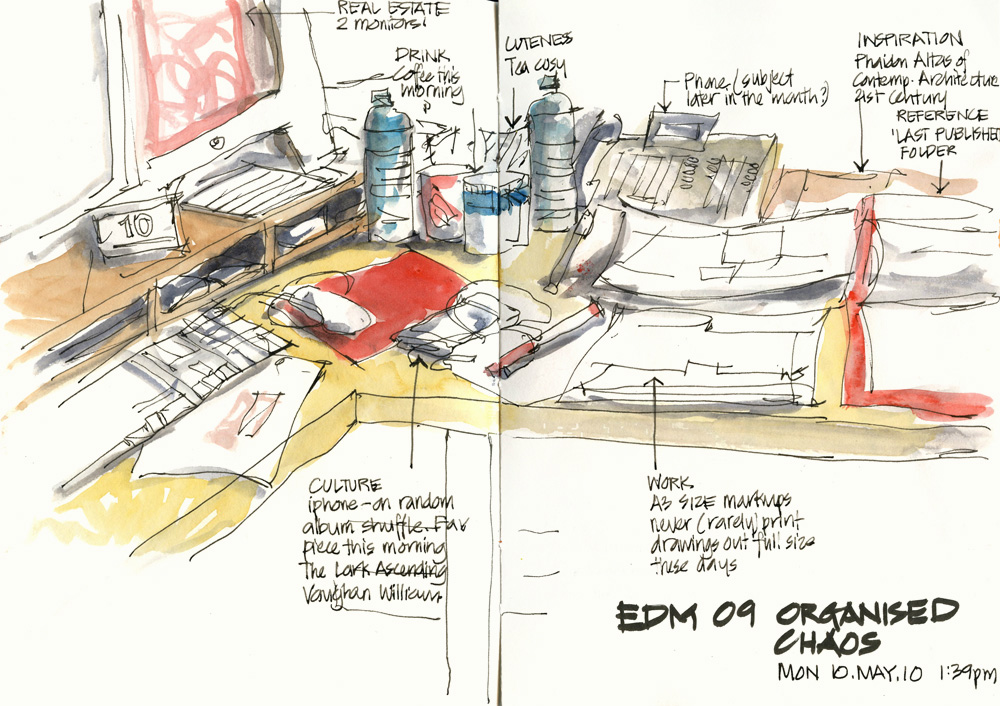 REAL ESTATE
2 monitors!
DRINK
coffee this
morning
CUTENESS
Tea cosy
Phone (subject
later in the month?)
INSPIRATION
Phaidon Altas of
Contemp. Architecture
21st Century
REFERENCE
'LAST PUBLISHED'
FOLDER
10
CULTURE
iphone-on random
album shuffle. Fav
piece this morning
The Lark Ascending
Vaughan Williams
WORK
A3 SIZE markups
never (rarely) print
drawings out full size
these days
EDM 09 ORGANISED
CHAOS
MON 10.MAY.10 1:39pm